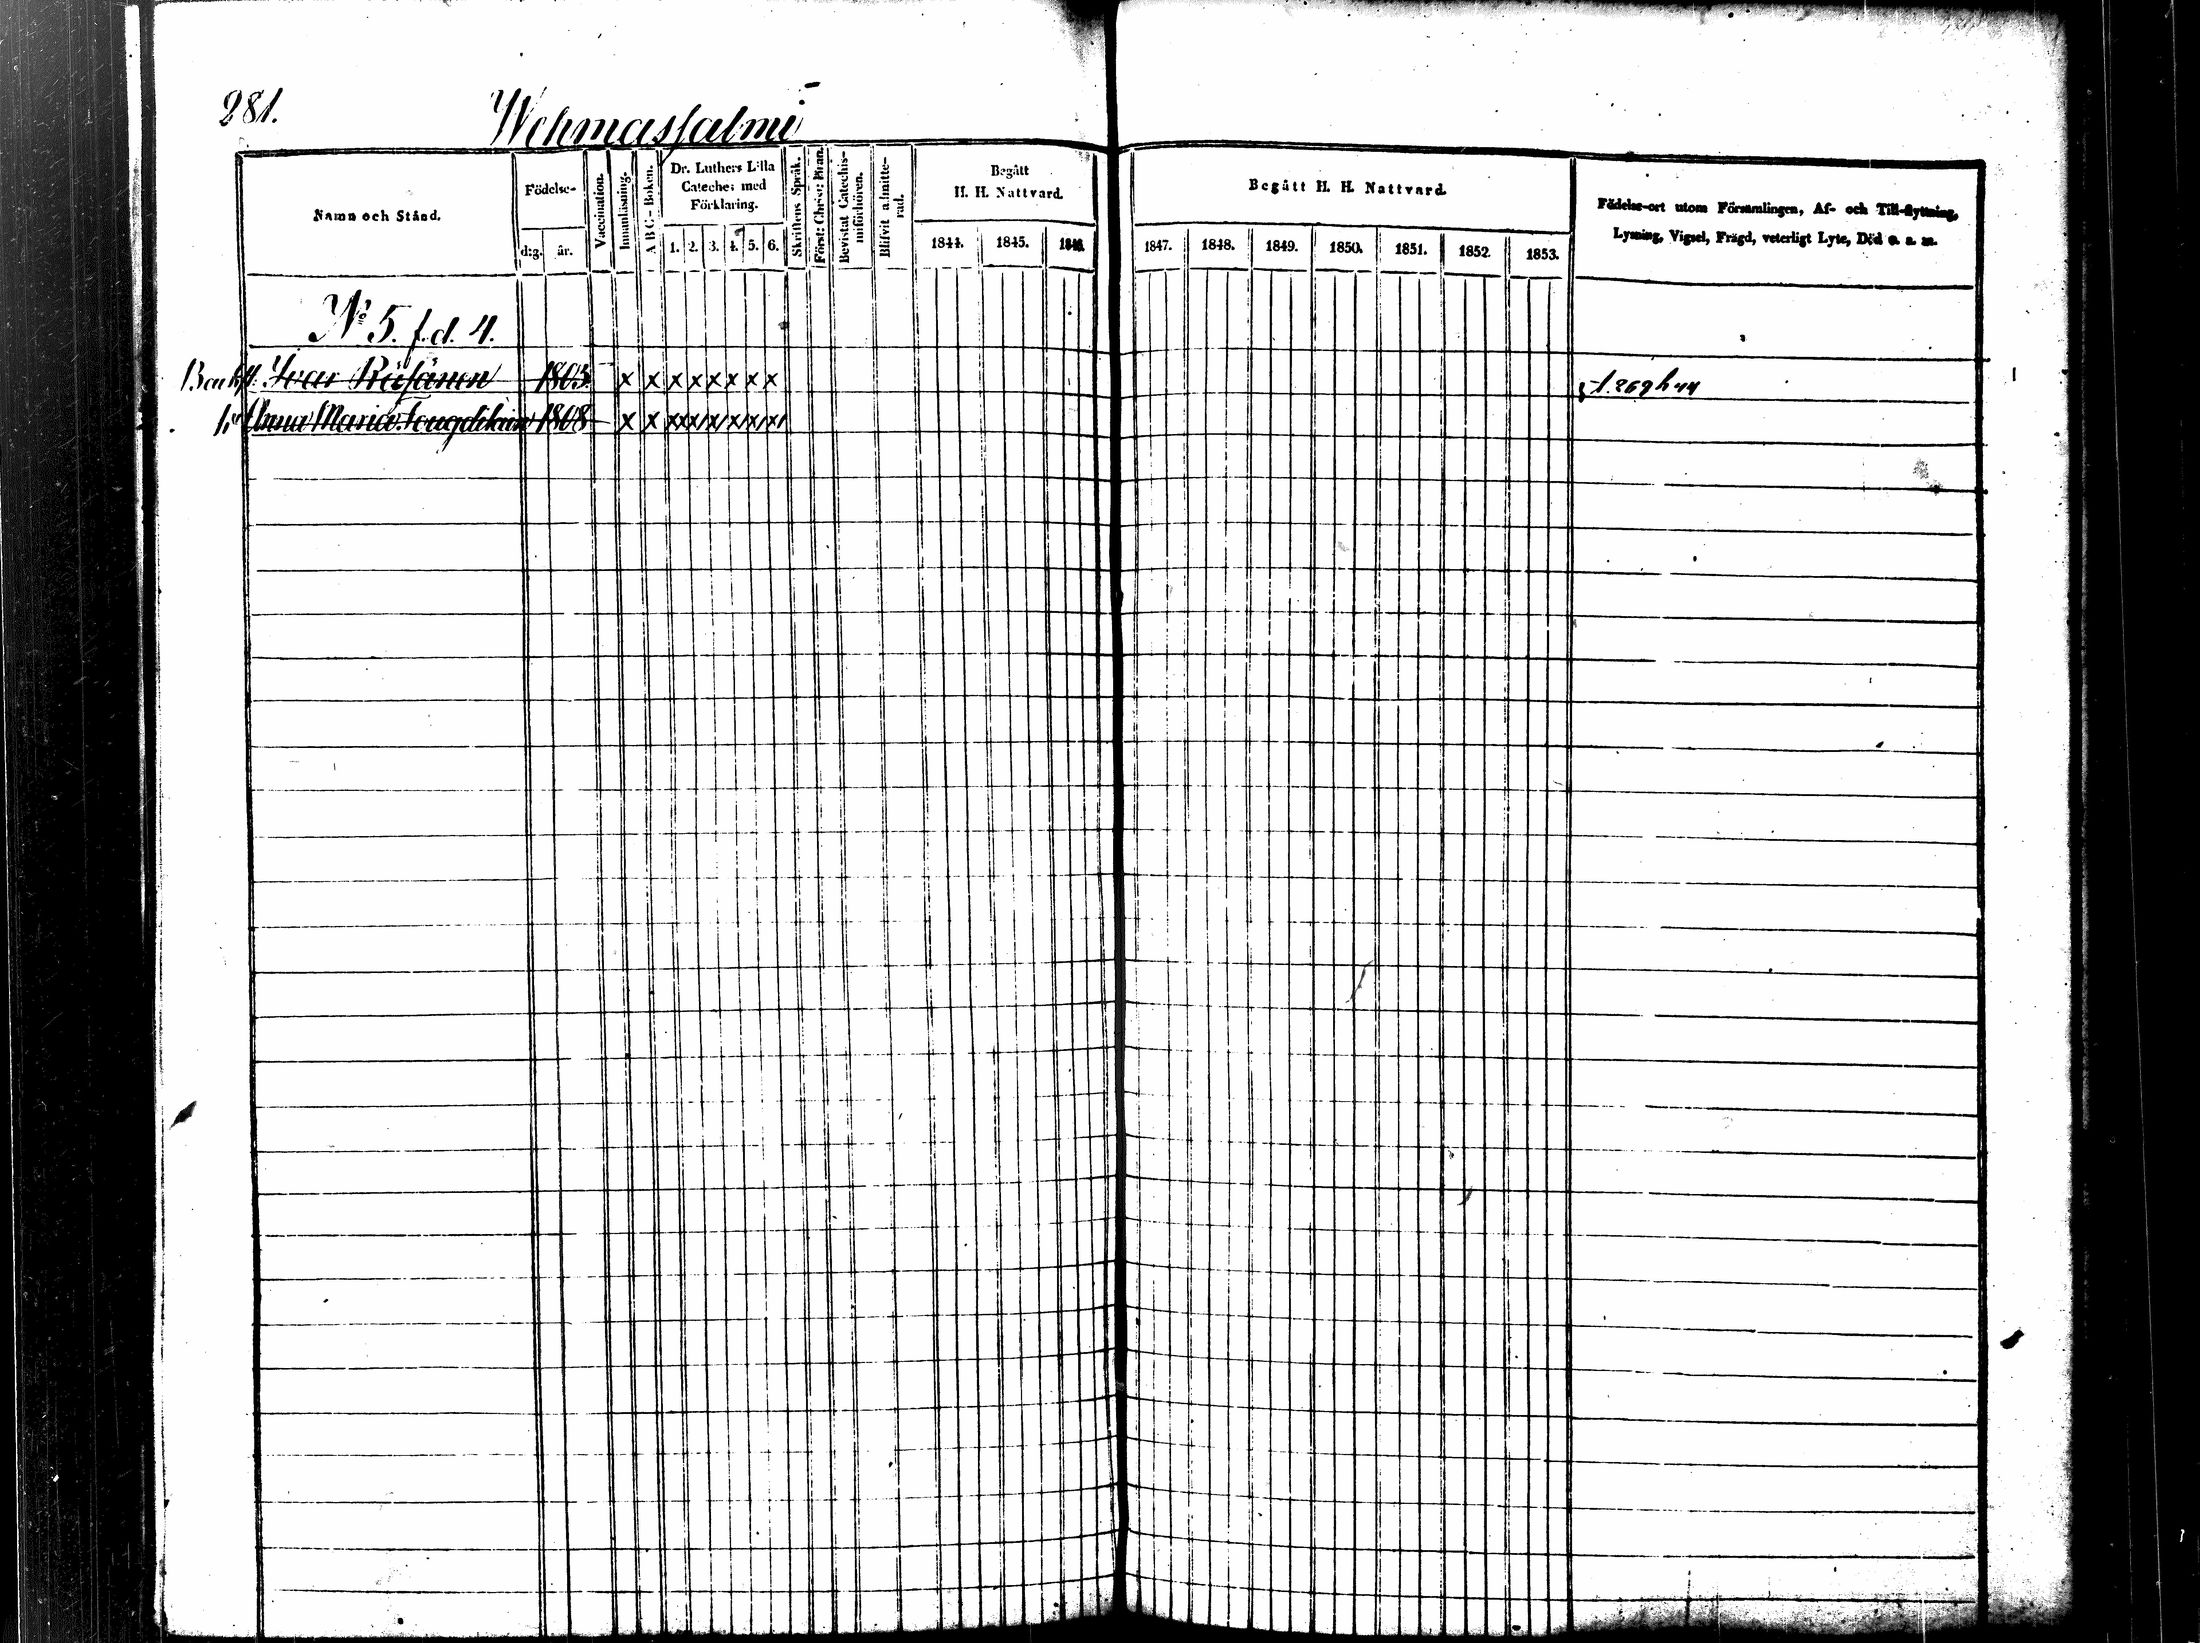 281.
Wehmassalmi
Namn och Stånd.
Födelse-
d:g. år.
Vaccination.
Innanläsning.
A B C - Boken.
Dr. Luthers Lilla
Cateches med
Förklaring.
1. 2. 3. 4. 5. 6.
Skriftens Språk.
Bevistat Catechis-
miförhören.
Blifvit admitte-
rad.
Begått
H. H. Nattvard.
1844. 1845. 1846.
Begått H. H. Nattvard.
1847. 1848. 1849. 1850. 1851. 1852. 1853.
Födelse-ort utom Församlingen, Af- och Till-flyttning,
Lysning, Vigsel, Frägd, veterligt Lyte, Död o. s. m.
No 5. f.d. 4.
Ivar Räsänen 1805 x x x x x x x x
Anna Maria 1808 x x